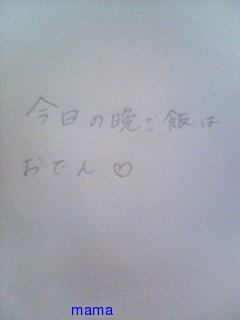 今日の晩ご飯は
おでん♡
mama